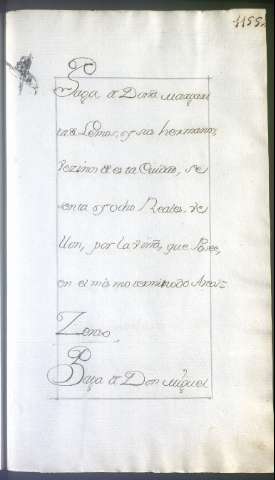 1155
Paga Dª Dona Margari
ta de Lemos, y sus hermanos,
Vezinos de esta Ciudad, se
senta y ocho Reales de
Vllon, por la viña, que Posee,
en el mismo termino do Arca=
Zenso,
Paga Dª Don Miguel